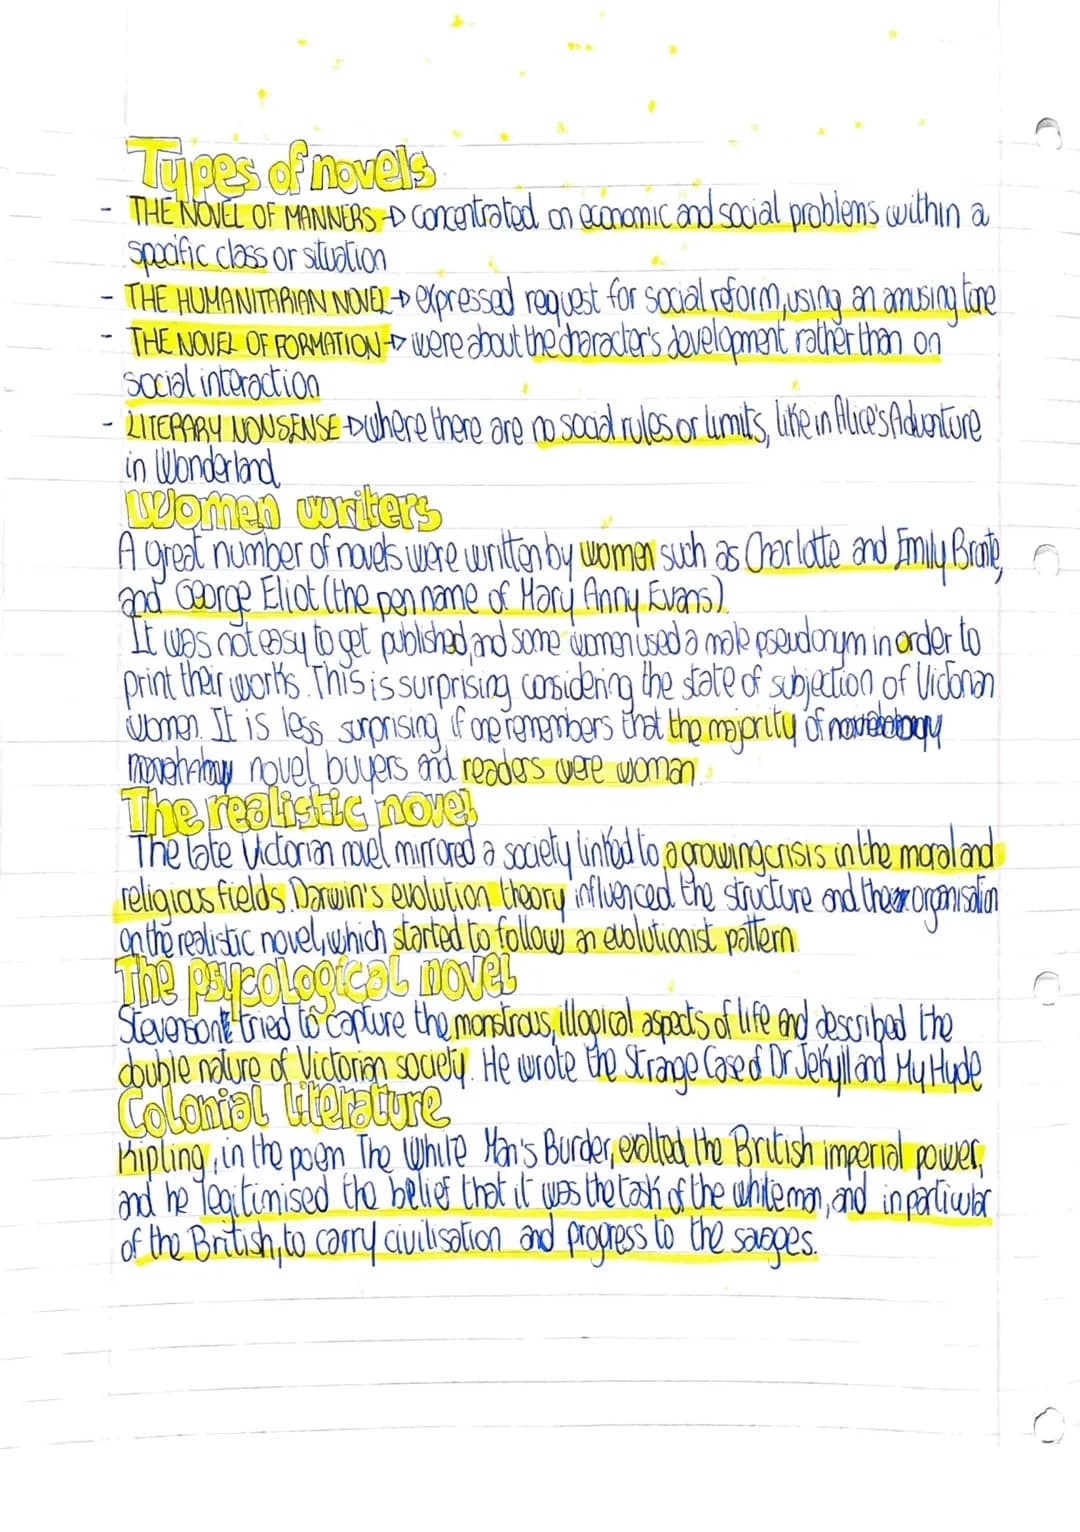 Types of novels
- THE NOVEL OF MANNERS → concentrated on economic and social problems within a
specific class or situation
- THE HUMANITARIAN NOVEL → expressed request for social reform, using an amusing tone
- THE NOVEL OF FORMATION → were about the character's development rather than on
social interaction
- LITERARY NONSENSE → where there are no social rules or limits, like in Alice's Adventure
in Wonderland
Women writers
A great number of novels were written by women such as Charlotte and Emily Bronte,
and George Eliot (the pen name of Mary Anny Evans).
It was not easy to get published, and some women used a male pseudonym in order to
print their works. This is surprising considering the state of subjection of Victorian
women. It is less surprising if one remembers that the majority of
novel buyers and readers were woman.
The realistic novel
The late Victorian novel mirrored a society linked to a growing crisis in the moral and
religious fields. Darwin's evolution theory influenced the structure and the organisation
on the realistic novel, which started to follow an evolutionist pattern
The psycological novel
Stevenson tried to capture the monstrous, illogical aspects of life and described the
double nature of Victorian society. He wrote the Strange Case of Dr Jekyll and My Hyde
Colonial literature
Kipling, in the poem The White Man's Burder, exalted the British imperial power,
and he legitimised the belief that it was the task of the white man, and in particular
of the British, to carry civilisation and progress to the savages.